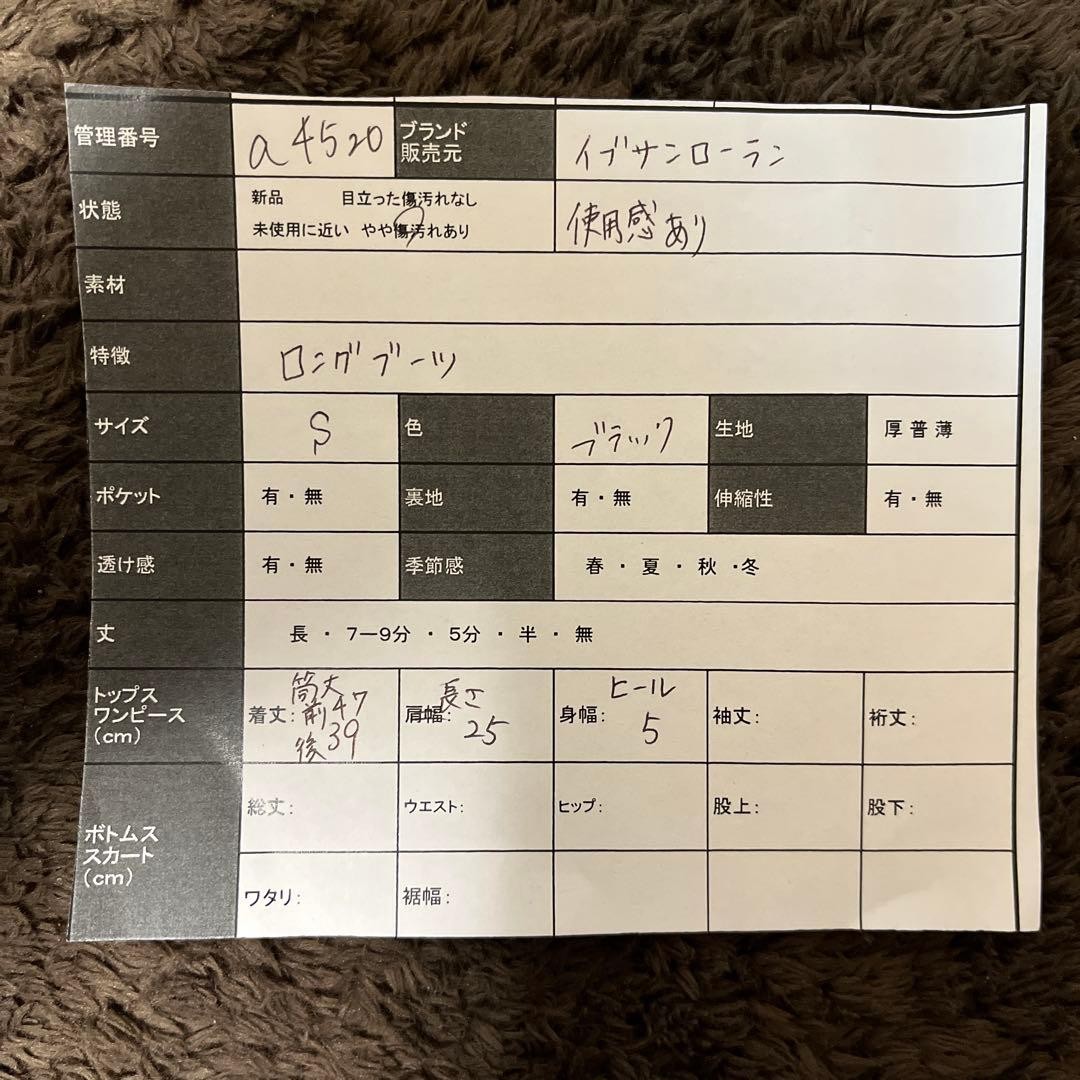 管理番号 a4520 ブランド 販売元 イブサンローラン
状態 新品 目立った傷汚れなし
未使用に近い やや傷汚れあり 使用感あり
素材
特徴 ロングブーツ
サイズ S 色 ブラック 生地 厚普薄
ポケット 有・無 裏地 有・無 伸縮性 有・無
透け感 有・無 季節感 春・夏・秋・冬
丈 長・7ー9分・5分・半・無
トップス ワンピース (cm) 着丈: 筒丈 前47 後39 肩幅: 長さ 25 身幅: ヒール 5 袖丈: 裄丈:
ボトムス スカート (cm) 総丈: ウエスト: ヒップ: 股上: 股下:
ワタリ: 裾幅: